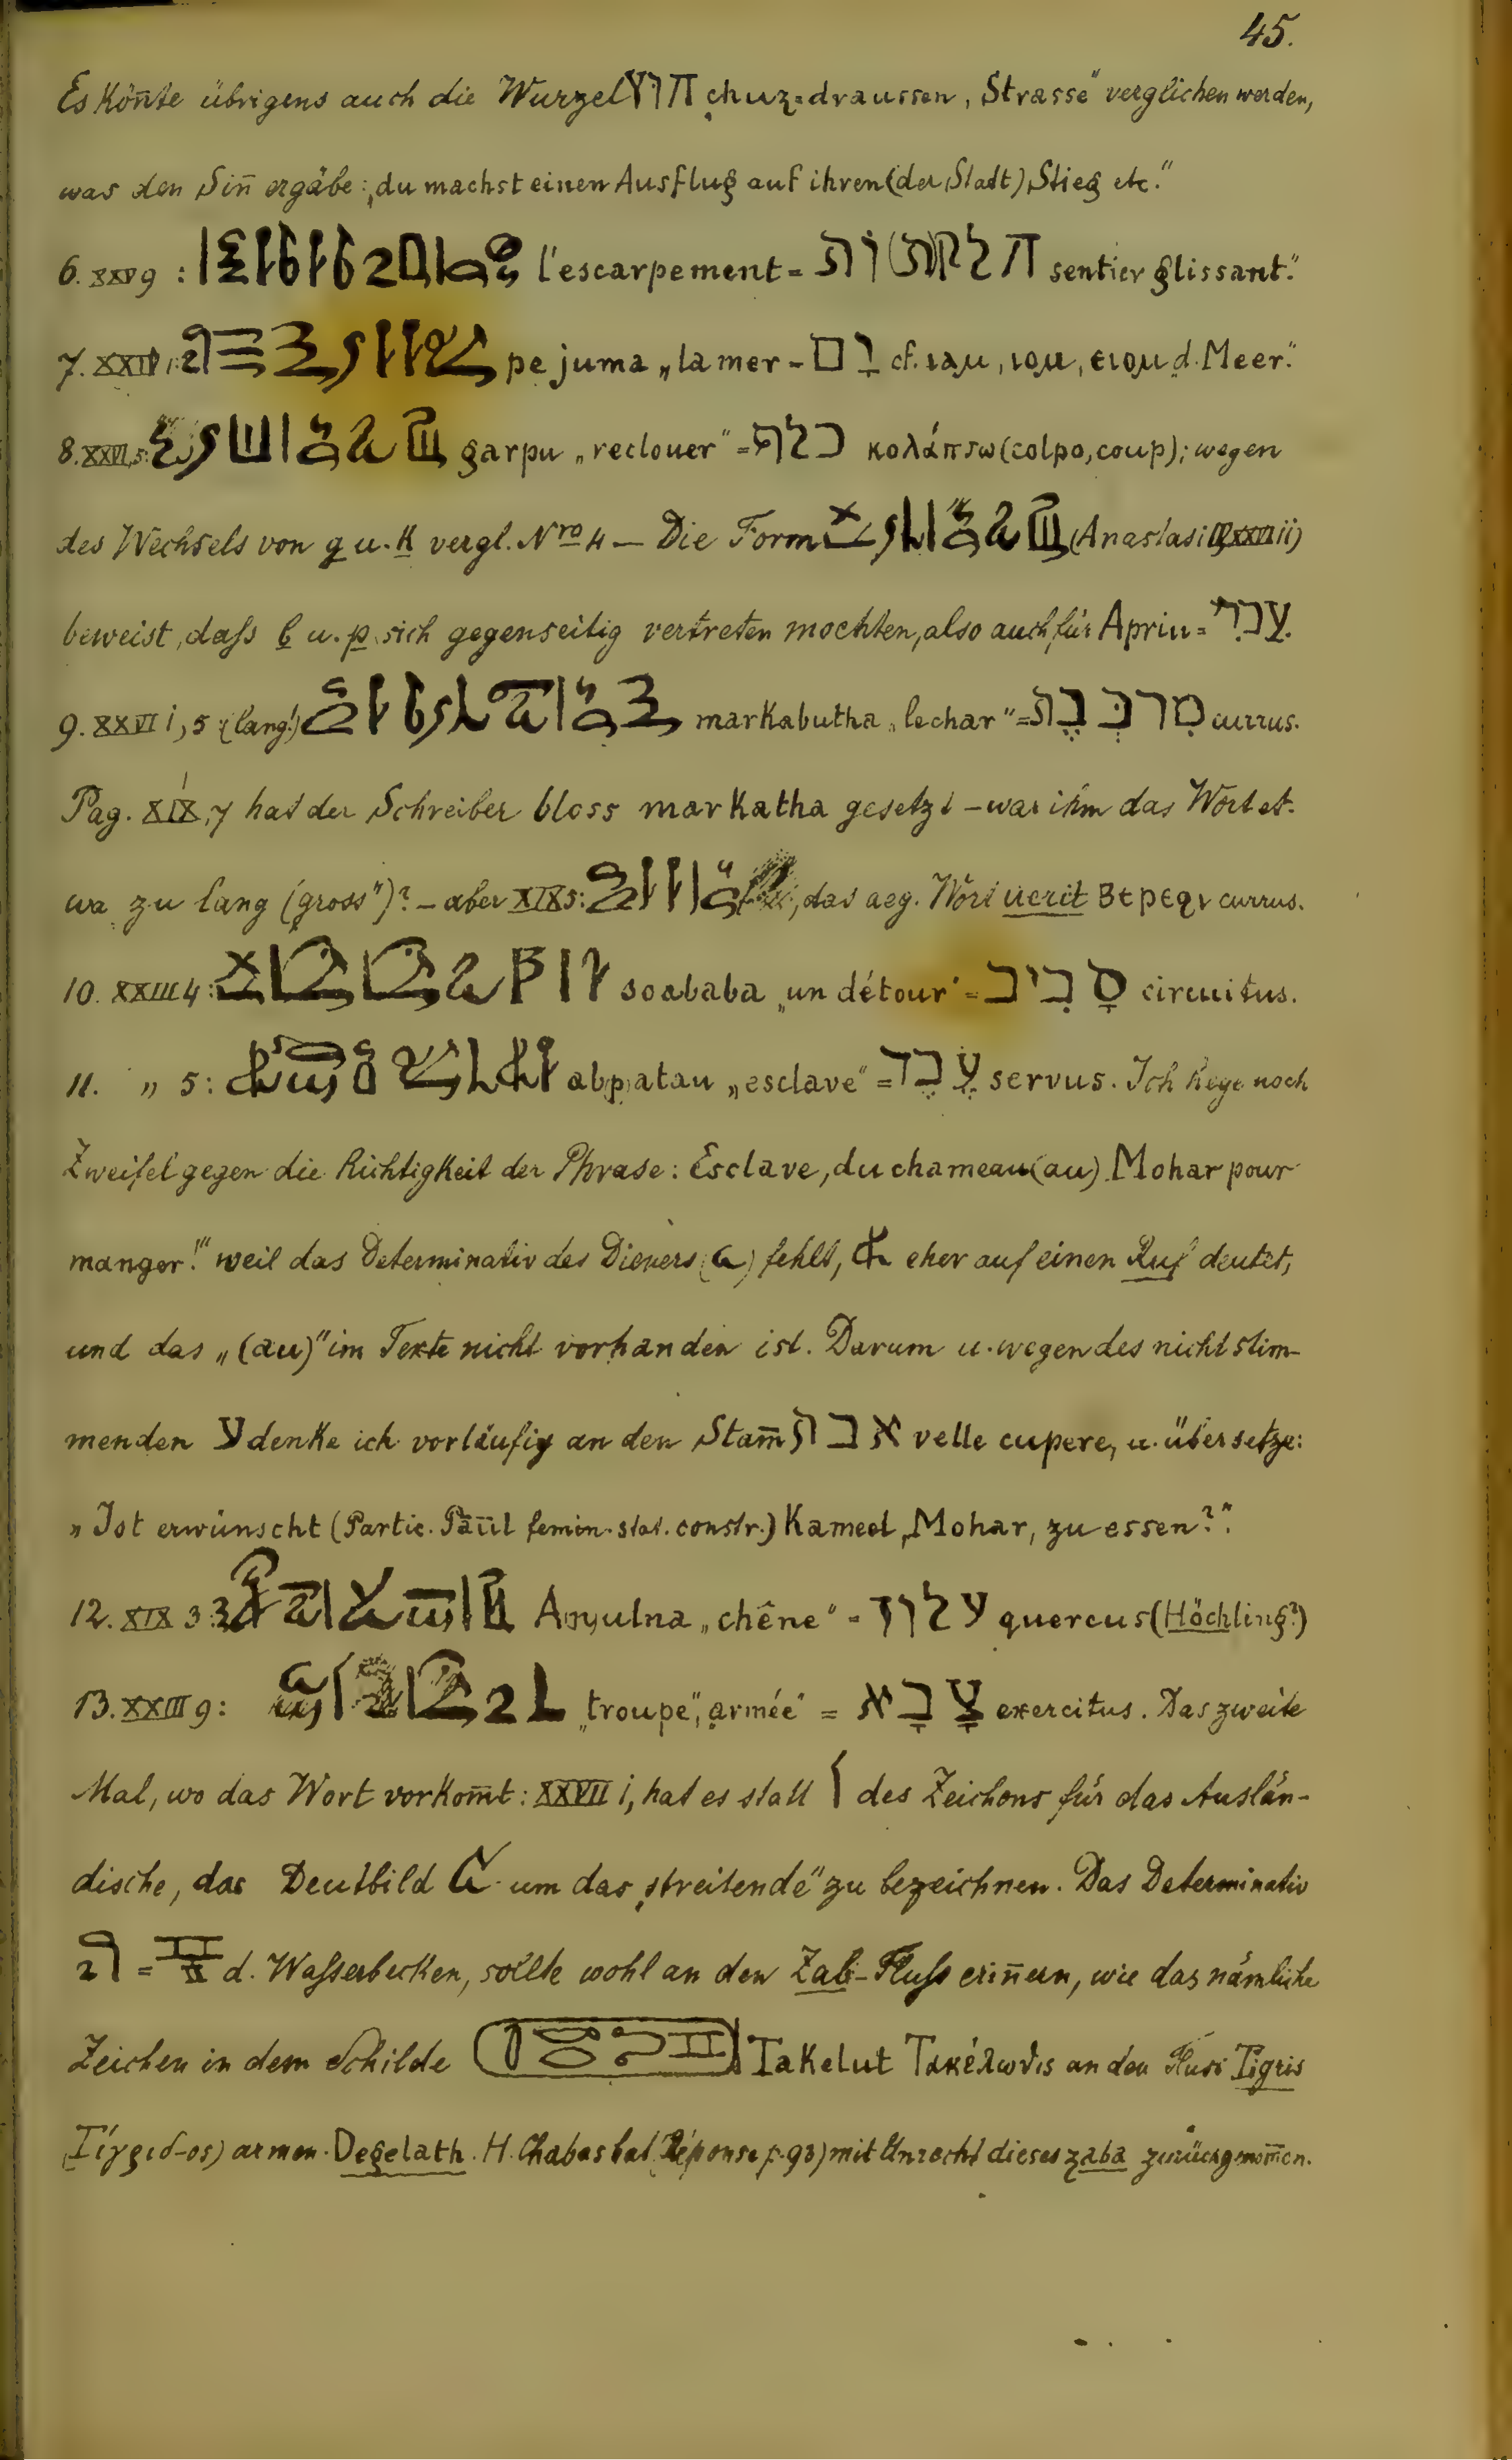 45.
Es kön̄te übrigens auch die Wurzel חוץ chuz = draussen, Strasse" verglichen werden,
was den Sin̄ ergäbe: „du machst einen Ausflug auf ihren (der Stadt) Stieg etc."
6. XXV 9 : l'escarpement = sentier glissant."
7. XXIV, 1: pe juma „la mer = יָם cf. ιαμ, ιομ, ειομ d. Meer."
8. XXVI, 5: garpu „reclouer" = כלף κολάπτω (colpo, coup); wegen
des Wechsels von g u. k vergl. Nro 4 — Die Form (Anastasi
beweist, daſs b u. p sich gegenseitig vertreten mochten, also auch für Apriu = עברי.
9. XXVI i, 5 (lang!) markabutha „le char" = מרכבת currus.
Pag. XIX, 7 hat der Schreiber bloss markatha gesetzt – war ihm das Wort et-
wa zu lang (gross")? – aber XIX 5: , das aeg. Wort uerit currus.
10. XXIII 4: soababa „un détour" = סָבִיב circuitus.
11. „ 5: abpatau „esclave" = עֶבֶד servus. Ich hege noch
Zweifel gegen die Richtigkeit der Phrase: Esclave, du chameau (au) Mohar pour
manger!" weil das Determinativ des Dieners ( ) fehlt, eher auf einen Ruf deutet,
und das „(au)" im Texte nicht vorhanden ist. Darum u. wegen des nicht stim-
menden ע denke ich vorläufig an den Stam̄ אבה velle cupere, u. übersetze:
„Ist erwünscht (Partic. Päül femin. stat. constr.) Kameel, Mohar, zu essen?".
12. XIX 3: „chêne" = עלון quercus (Höchling?)
13. XXIII 9: „troupe", armée" = צָבָא exercitus. Das zweite
Mal, wo das Wort vorkom̄t: XXVII i, hat es statt des Zeichens für das Auslän-
dische, das Deutbild um das „streitende" zu bezeichnen. Das Determinativ
= d. Waſserbecken, sollte wohl an den Zab-Fluſs erin̄ern, wie das nämliche
Zeichen in dem Schilde Takelut Τακέλωθις an den Fluss Tigris
(Τίγριδ-ος) armen. Degelath. H. Chabas hat (Réponse p. 93) mit Unrecht dieses zaba zurückgenom̄en.